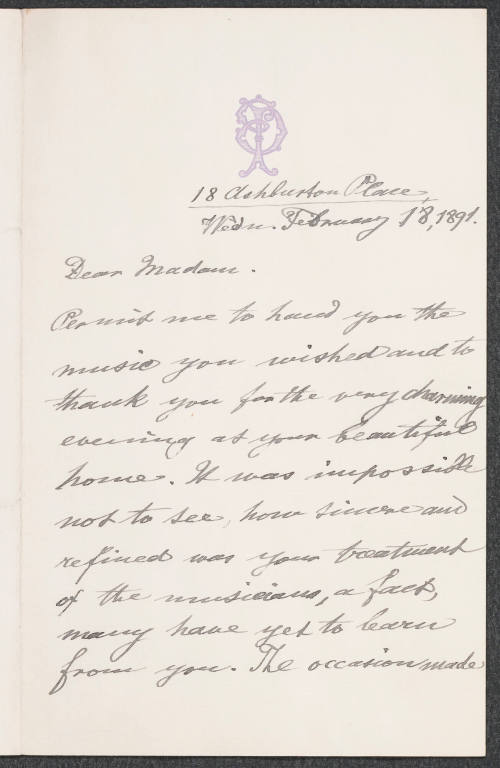 18 Ashburton Place,
Wedn. February 18, 1891.
Dear Madam.
Permit me to hand you the
music you wished and to
thank you for the very charming
evening at your beautiful
home. It was impossible
not to see, how sincere and
refined was your treatment
of the musicians, a fact,
many have yet to learn
from you. The occasion made